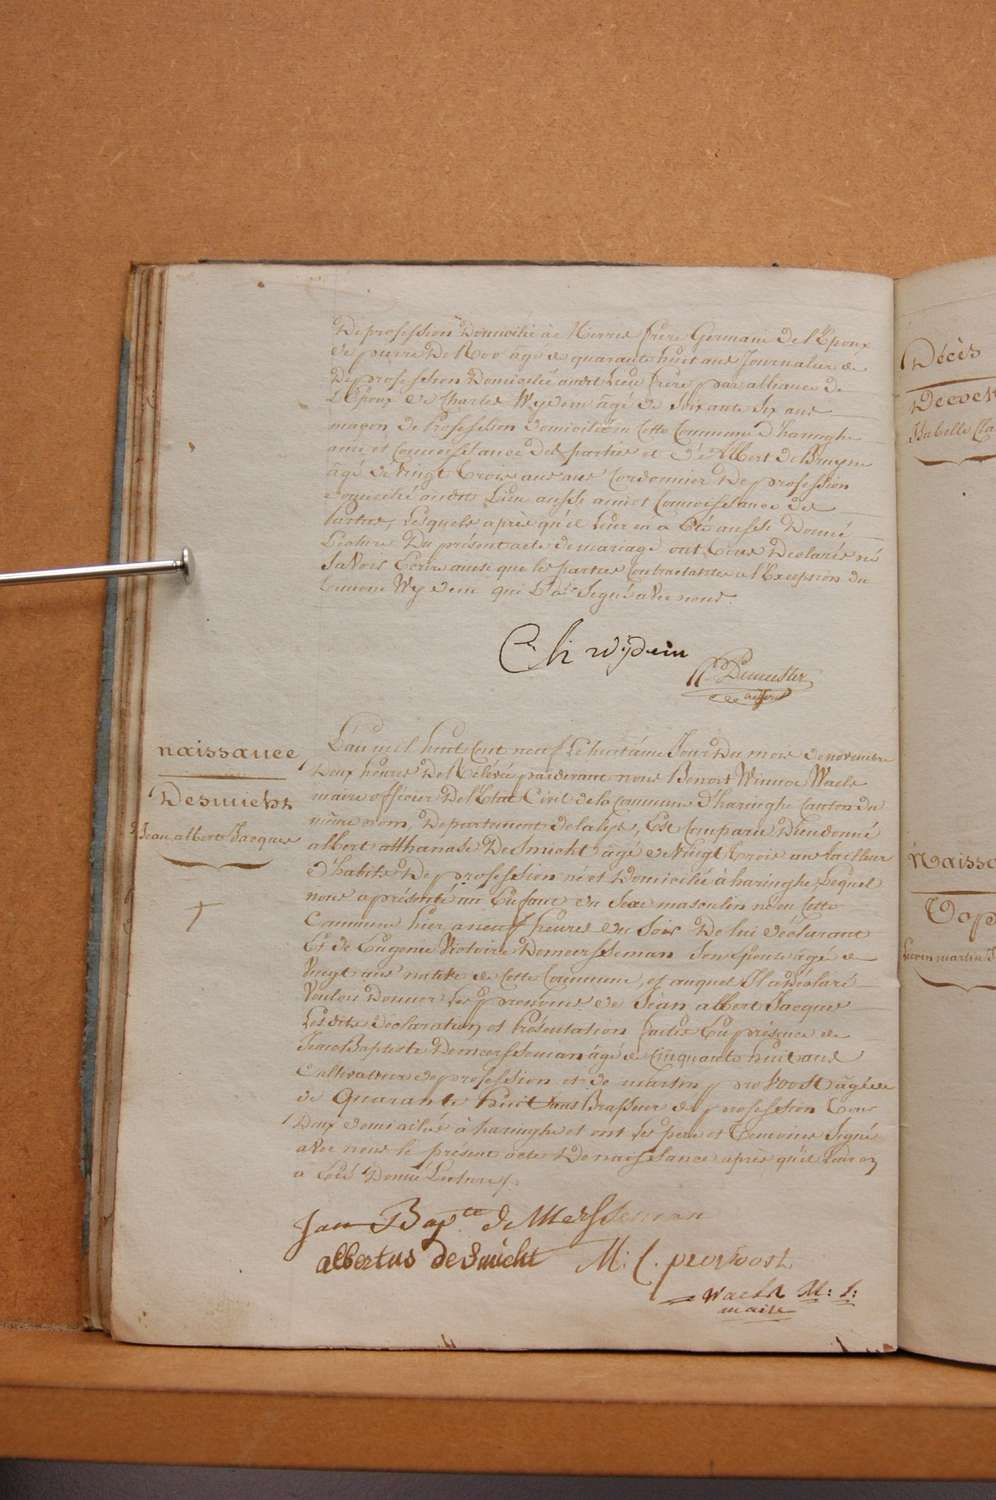 De profession Domicilié à Merris frère Germain de l'Epoux
de pierre De Roo âgé de quarante huit ans Journalier de
De profession Domicilié audit Lieu frère par alliance de
L'Epoux de Charles Wydem âgé de soixante six ans
maçon de Profession domicilié en Cette Commune d'haringhe
ami et Connoissance des parties et d'Albert de Bruyne
âgé de vingt trois ans Cordonnier De profession
domicilié audit Lieu aussi ami et Connoissance des
parties, Lesquels après qu'il Leur en a Eté aussi Donné
Lecture Du présent acte de mariage ont tous Declarés né
Savoir Ecrire ainsi que les parties Contractantes à l'Exception du
temoin Wydem qui L'a Signé avec nous.
Ch wijdem
Demeester
naissance
Desmicht
Jean albert Jacques
L'an mil huit Cent neuf Le huitième Jour Du mois de novembre
Deux heures De Relévée pardevant nous Benoit Winnoc Waels
maire officier De l'Etat Civil de la Commune d'haringhe Canton du
même nom, Departement de la Lys, Est Comparu Dieudonné
albert atthanase Desmicht âgé de Vingt trois ans tailleur
d'habits De profession né et Domicilié à haringhe Lequel
nous a présenté un Enfant du Sexe masculin né en Cette
Commune hier à neuf heures du Soir De lui déclarant
Et de Eugenie Victoire Demersseman Son Epouse âgé de
Vingt ans native de Cette Commune, et auquel Il a Déclaré
Vouloir Donner Les prenoms de Jean albert Jacques
Lesdites déclaration et Présentation faites En présence de
Jean Baptiste Demersseman âgé de Cinquante huit ans
Cultivateur de profession et de martin provoost âgé de
de Quarante huit ans Brasseur de profession tous
Deux domiciliés à haringhe et ont les père et temoins Signé
avec nous le présent acte De naissance après qu'il Leur en
a Eté Donné Lecture
Jan Bapte de Mersseman
albertus desmicht M: C. provoost
Waels M: J:
maire
Décès
Naissa